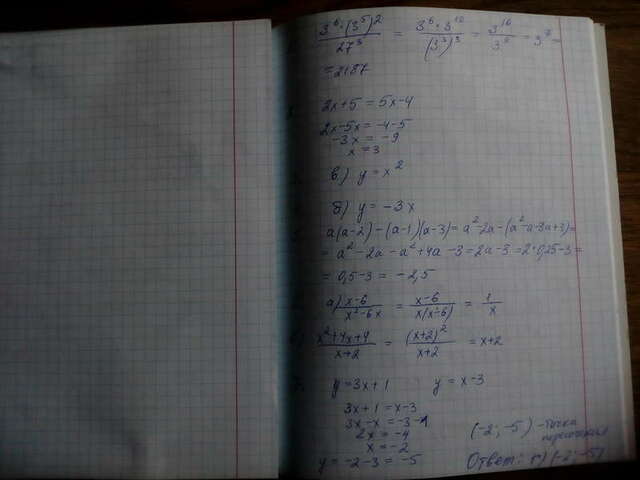 3⁶·(3⁵)² / 27³ = 3⁶·3¹⁰ / (3³)³ = 3¹⁶ / 3⁹ = 3⁷ =
= 2187
2x+5 = 5x-4
2x-5x = -4-5
-3x = -9
x = 3
в) y = x²
б) y = -3x
a(a-2) - (a-1)(a-3) = a²-2a-(a²-a-3a+3) =
= a²-2a-a²+4a-3 = 2a-3 = 2·0,25-3 =
= 0,5-3 = -2,5
а) x-6 / x²-6x = x-6 / x(x-6) = 1 / x
x²+4x+4 / x+2 = (x+2)² / x+2 = x+2
y = 3x+1 y = x-3
3x+1 = x-3
3x-x = -3-1
2x = -4
x = -2
y = -2-3 = -5
(-2; -5) - точка
пересечения
Ответ: г) (-2; -5)